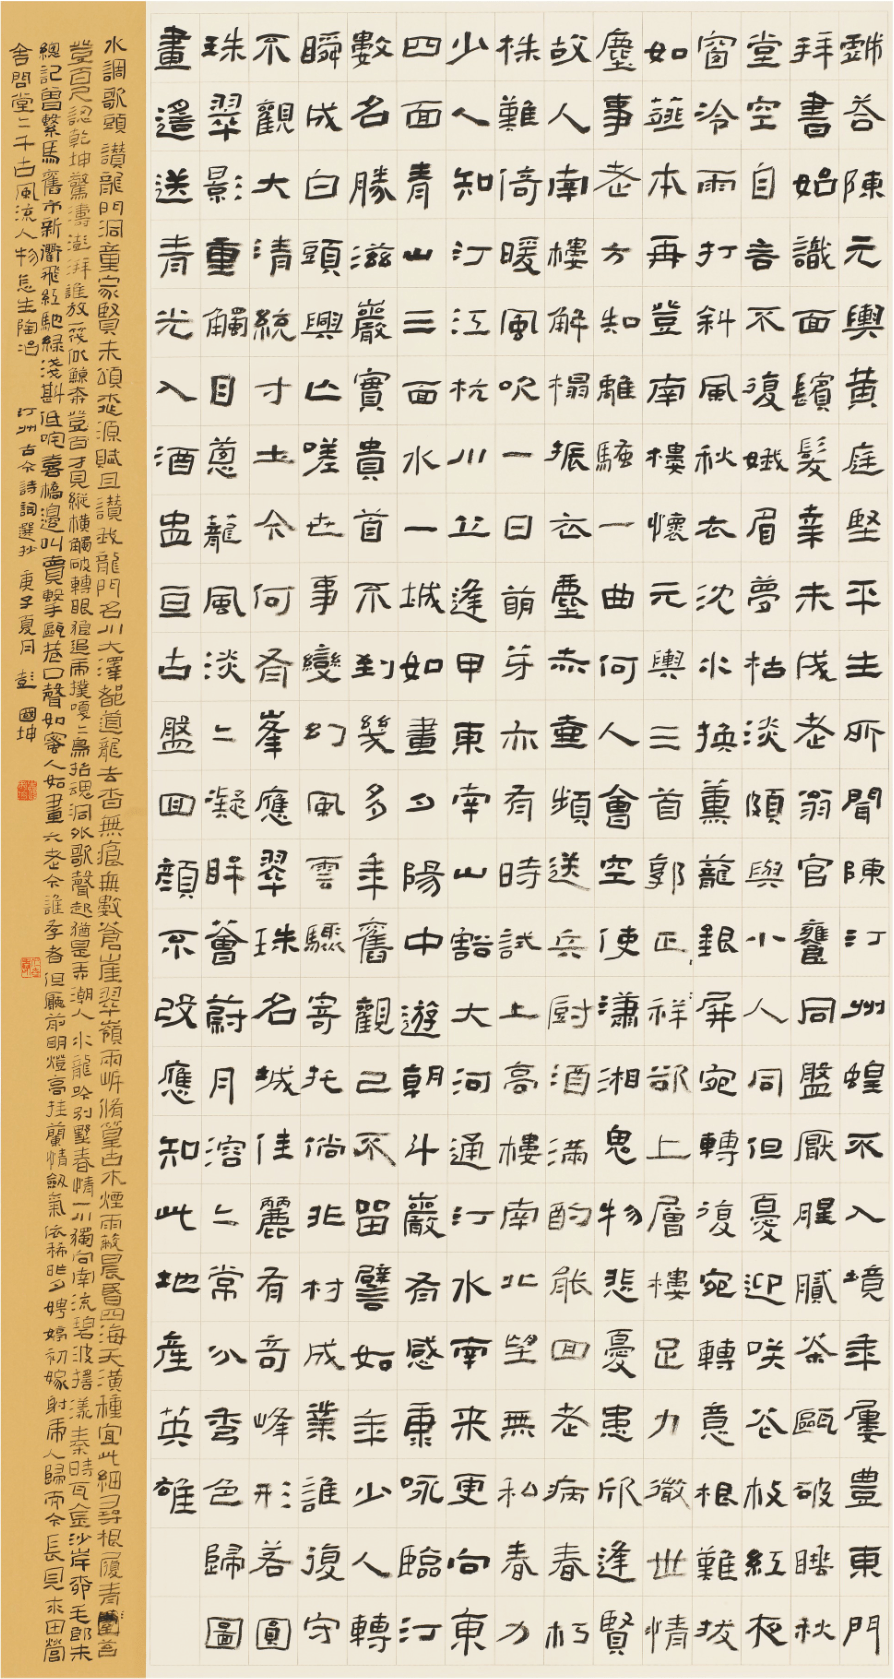 答陳元輿黃庭堅平生所聞陳汀州蝗不入境年屢豐東門
拜書始識面鬢髮幸未成老翁官饔同盤厭腥膩茶甌破睡秋
堂空自言不復娥眉夢枯淡頗與小人同但憂迎咲花枝紅夜
窗冷雨打斜風秋衣沈水換薰籠銀屏宛轉復宛轉意根難拔
如薤本再登南樓懷元輿三首郭正祥欲上層樓足力微世情
塵事老方知離騷一曲何人會空使瀟湘鬼物悲憂患欣逢賢
故人南樓解榻振衣塵赤童頻送兵厨酒滿酌能回老病春朽
株難倚暖風吹一日萌芽亦有時試上高樓南北望無私春力
少人知汀江杭川丘逢甲東南山豁大河通汀水南来更向東
四面青山三面水一城如畫夕陽中遊朝斗巖有感康咏臨汀
數名勝滋巖實貴首不到幾多年舊觀已不留譬如年少人轉
瞬成白頭興亡嗟世事變幻風雲驟寄托倘非材成業誰復守
不觀大清統寸土今何有峯應翠珠名城佳麗有奇峰形若圓
珠翠影重觸目蔥蘢風淡淡凝眸薈蔚月溶溶常分秀色歸圖
畫遙送青光入酒盅亘古盤回顏不改應知此地產英雄
水調歌頭 讚龍門洞童家賢未頌桃源賦且讚我龍門名川大澤都道龍去杳無痕無數蒼崖翠嶺兩岸脩篁古木煙雨蔽晨昏四海天潢種宜此細尋根履青
登百尺認乾坤驚濤澎湃誰放筏似鯨奔縱橫觸破轉眼猿追虎撲嘎嘎鳥招魂洞外歌聲起猶是弄潮人 水龍吟別墅春情一川獨向南流碧波搖漾秦時瓦金沙岸毛郎未
總記曾繫馬舊市新衢飛紅馳綠淺斟低咤喜橋邊叫賣擊甌巷口聲如蜜人如畫六老今誰存者但廳前明燈高挂蘭情劍氣依稀昨夕娉婷初嫁射虎人歸而今長見求田營
舍問堂堂千古風流人物怎生陶冶 汀州古今詩詞選抄 庚子夏月 彭國坤